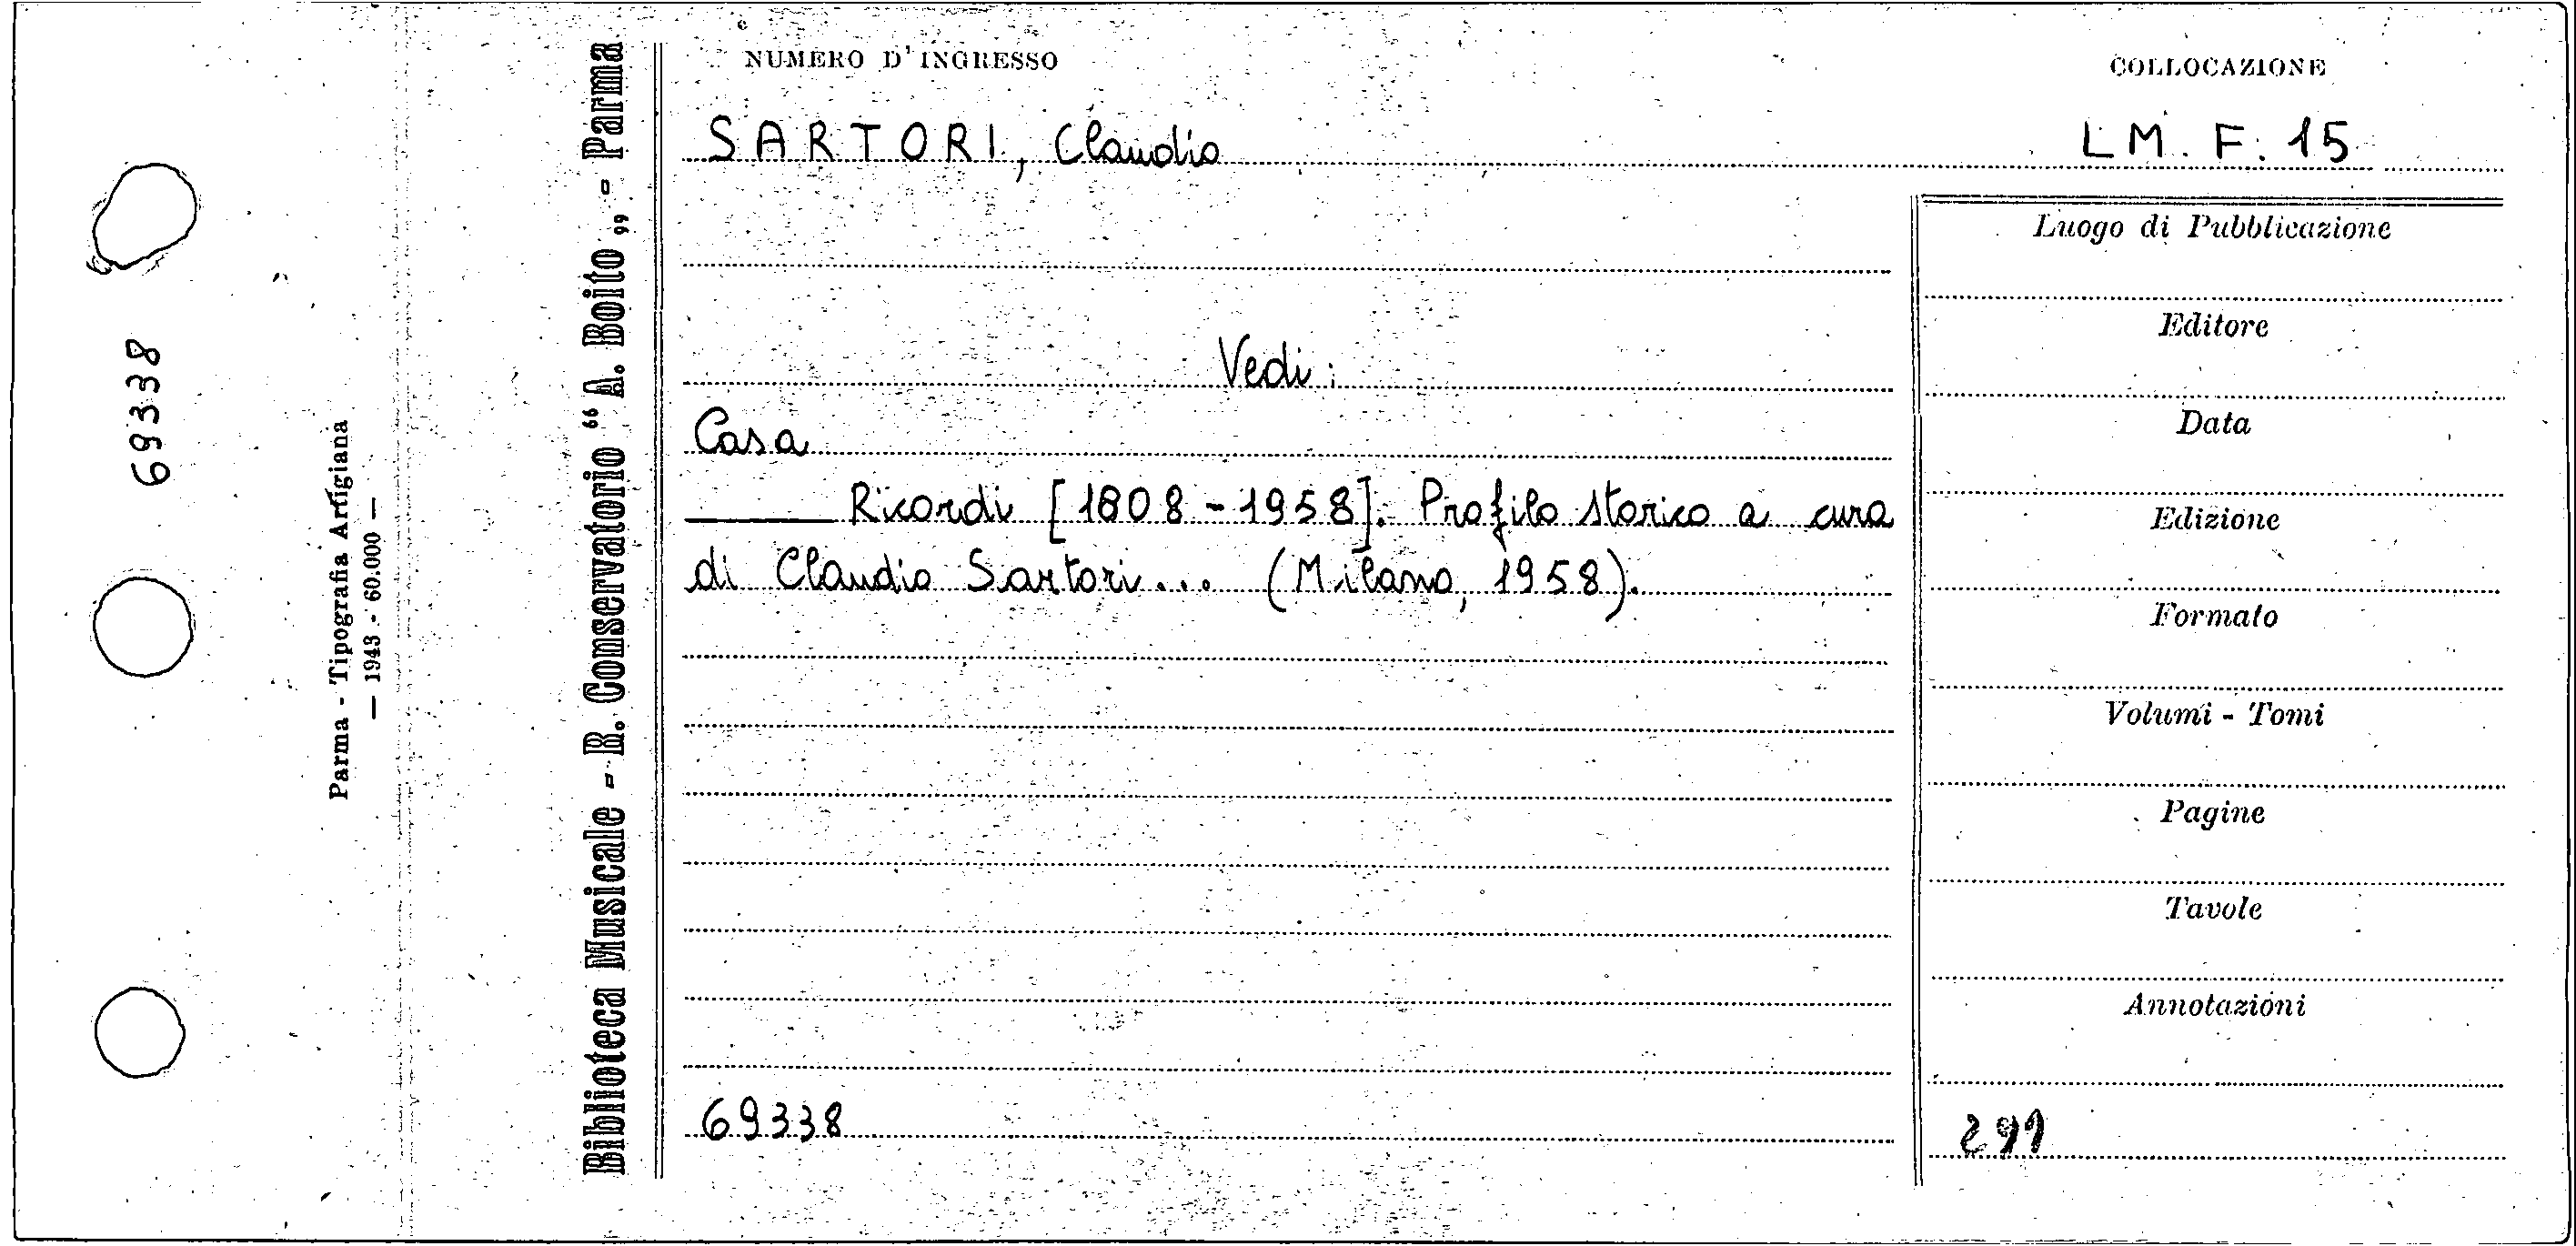 NUMERO D'INGRESSO
COLLOCAZIONE
SARTORI, Claudio
LM. F. 15
Vedi:
Casa
——— Ricordi [1808-1958]. Profilo storico a cura
di Claudio Sartori... (Milano, 1958).
69338
Luogo di Pubblicazione
Editore
Data
Edizione
Formato
Volumi - Tomi
Pagine
Tavole
Annotazioni
Biblioteca Musicale - R. Conservatorio “ A. Boito „ - Parma
Parma - Tipografia Artigiana
— 1943 - 60.000 —
69338